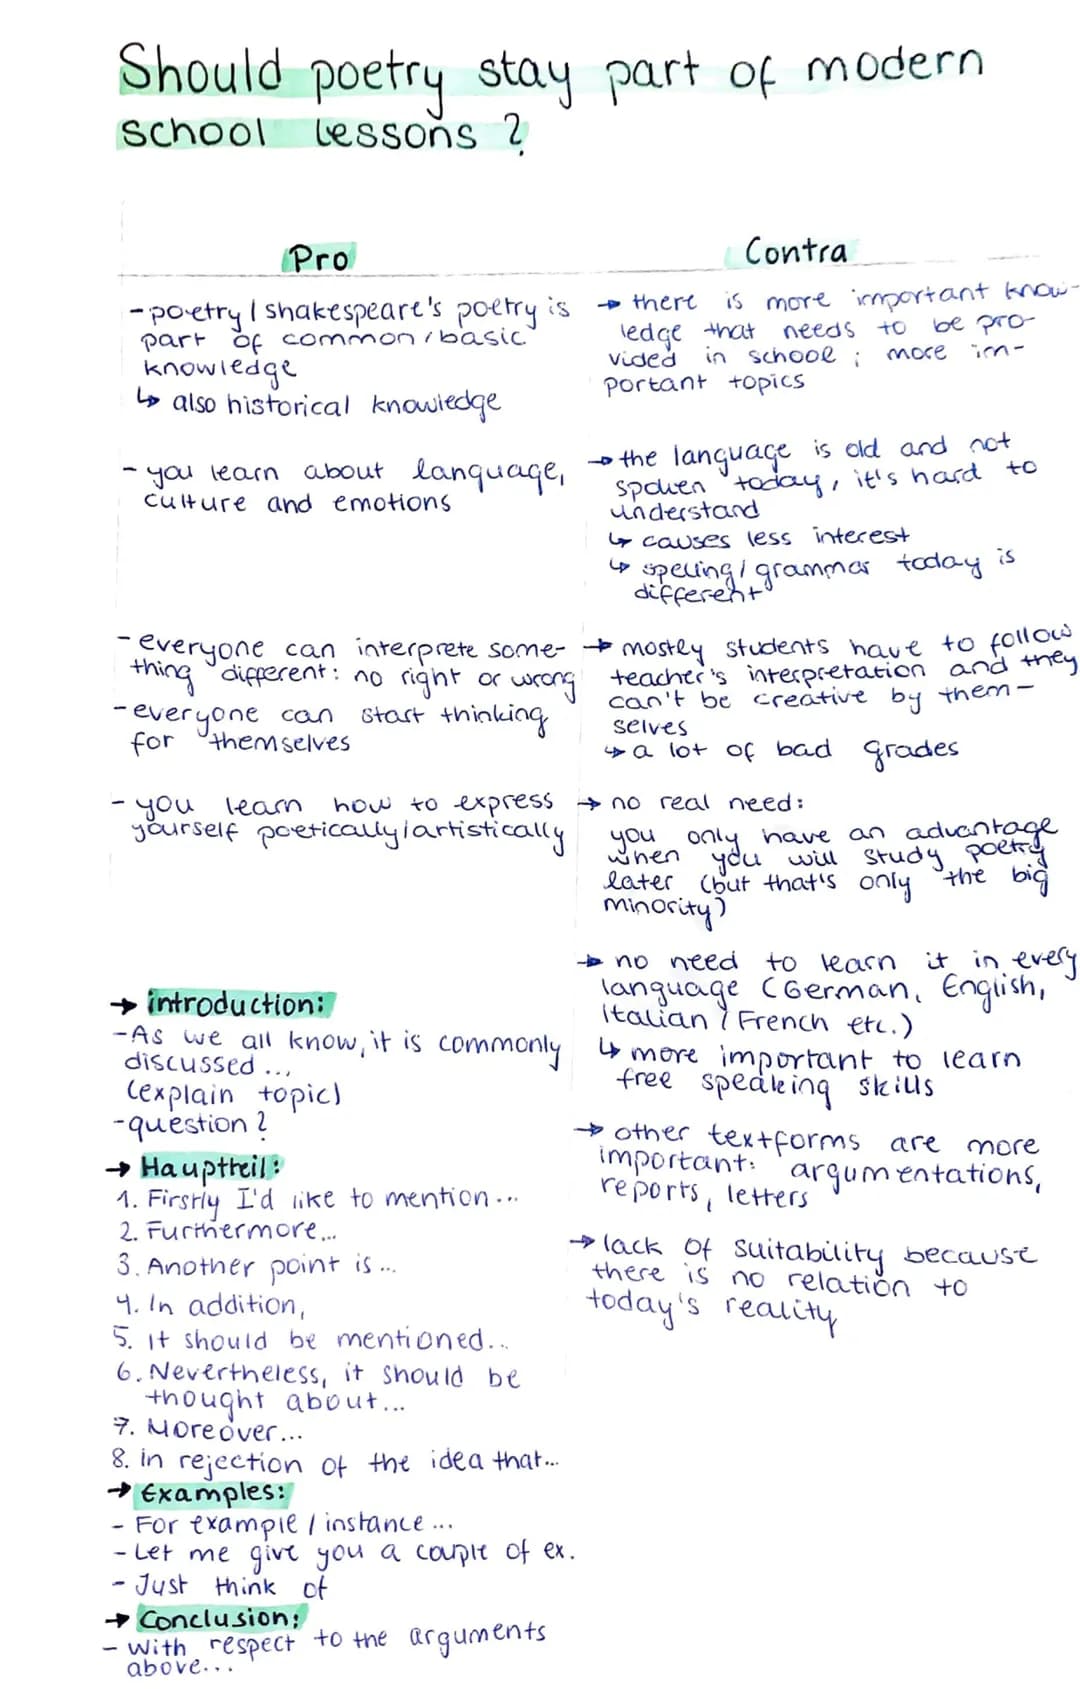 Should poetry stay part of modern
school lessons ?
Pro
- poetry / shakespeare's poetry is
part of common / basic
knowledge
↳ also historical knowledge
- you learn about language,
culture and emotions
- everyone can interprete some-
thing different: no right or wrong
- everyone can start thinking
for themselves
- you learn how to express
yourself poetically / artistically
→ introduction:
- As we all know, it is commonly
discussed ...
(explain topic)
- question ?
→ Hauptteil:
1. Firstly I'd like to mention ...
2. Furthermore...
3. Another point is ...
4. In addition,
5. it should be mentioned...
6. Nevertheless, it should be
thought about...
7. Moreover...
8. in rejection of the idea that...
→ Examples:
- For example / instance ...
- Let me give you a couple of ex.
- Just think of
→ Conclusion:
- with respect to the arguments
above...
Contra
→ there is more important know-
ledge that needs to be pro-
vided in school ; more im-
portant topics
→ the language is old and not
spoken today, it's hard to
understand
↳ causes less interest
↳ speling / grammar today is
different
→ mostly students have to follow
teacher's interpretation and they
can't be creative by them-
selves
↳ a lot of bad grades
→ no real need:
you only have an advantage
when you will study poetry
later (but that's only the big
minority)
→ no need to learn it in every
language (German, English,
Italian / French etc.)
↳ more important to learn
free speaking skills
→ other textforms are more
important: argumentations,
reports, letters
→ lack of suitability because
there is no relation to
today's reality